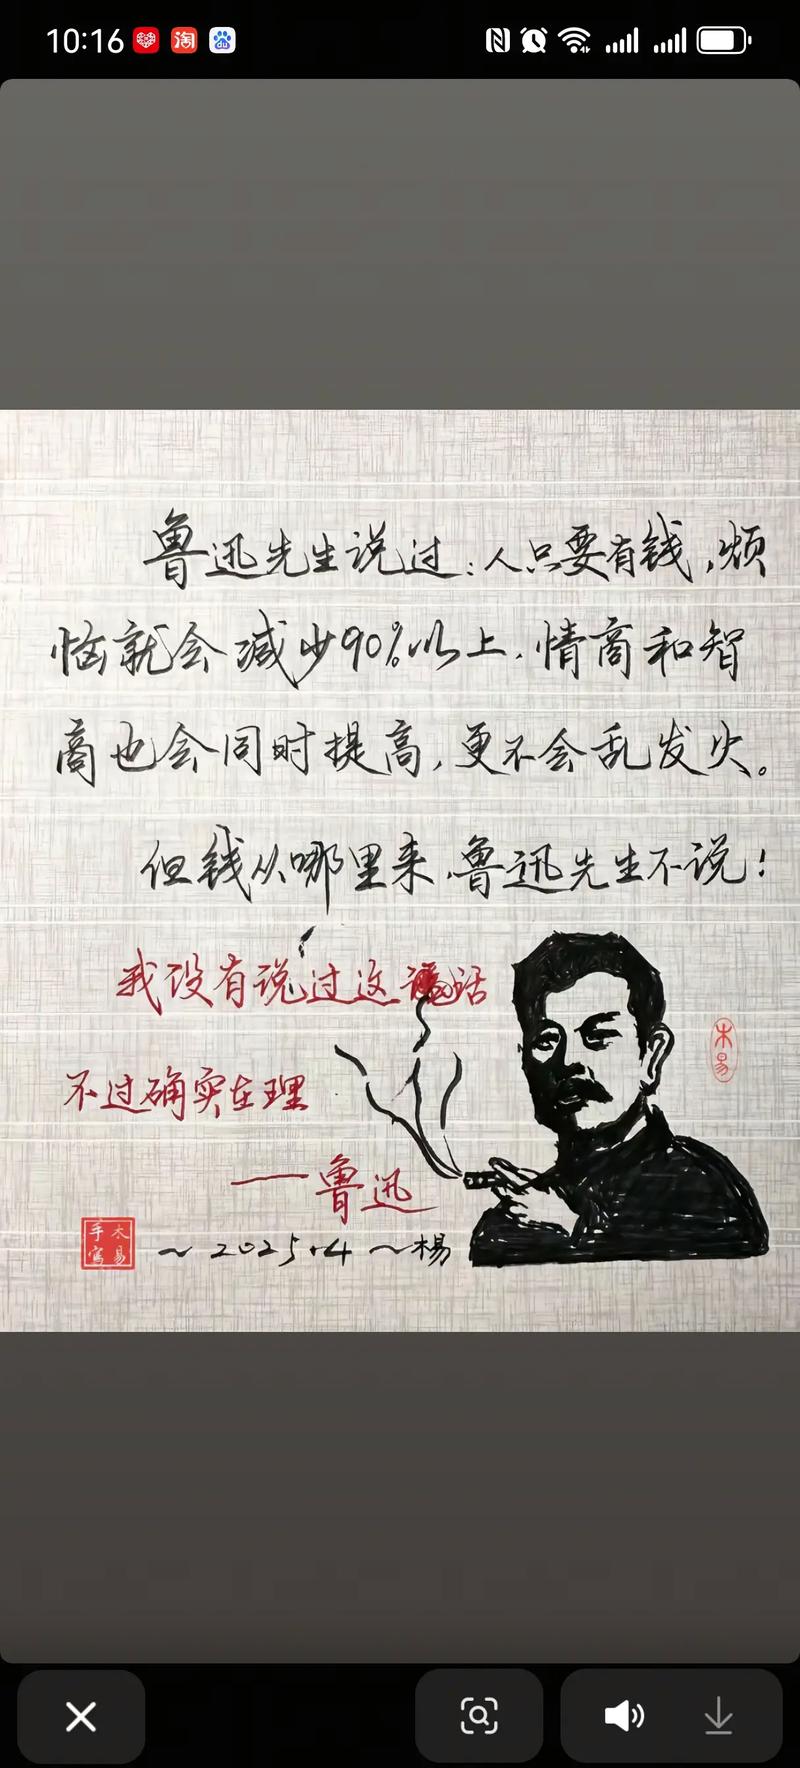 10:16
淘
du
鲁迅先生说过:人只要有钱,烦
恼就会减少90%以上,情商和智
商也会同时提高,更不会乱发火。
但钱从哪里来,鲁迅先生不说!
我没有说过这话
不过确实在理
——鲁迅
木易
手写
木易
~2025.4~杨